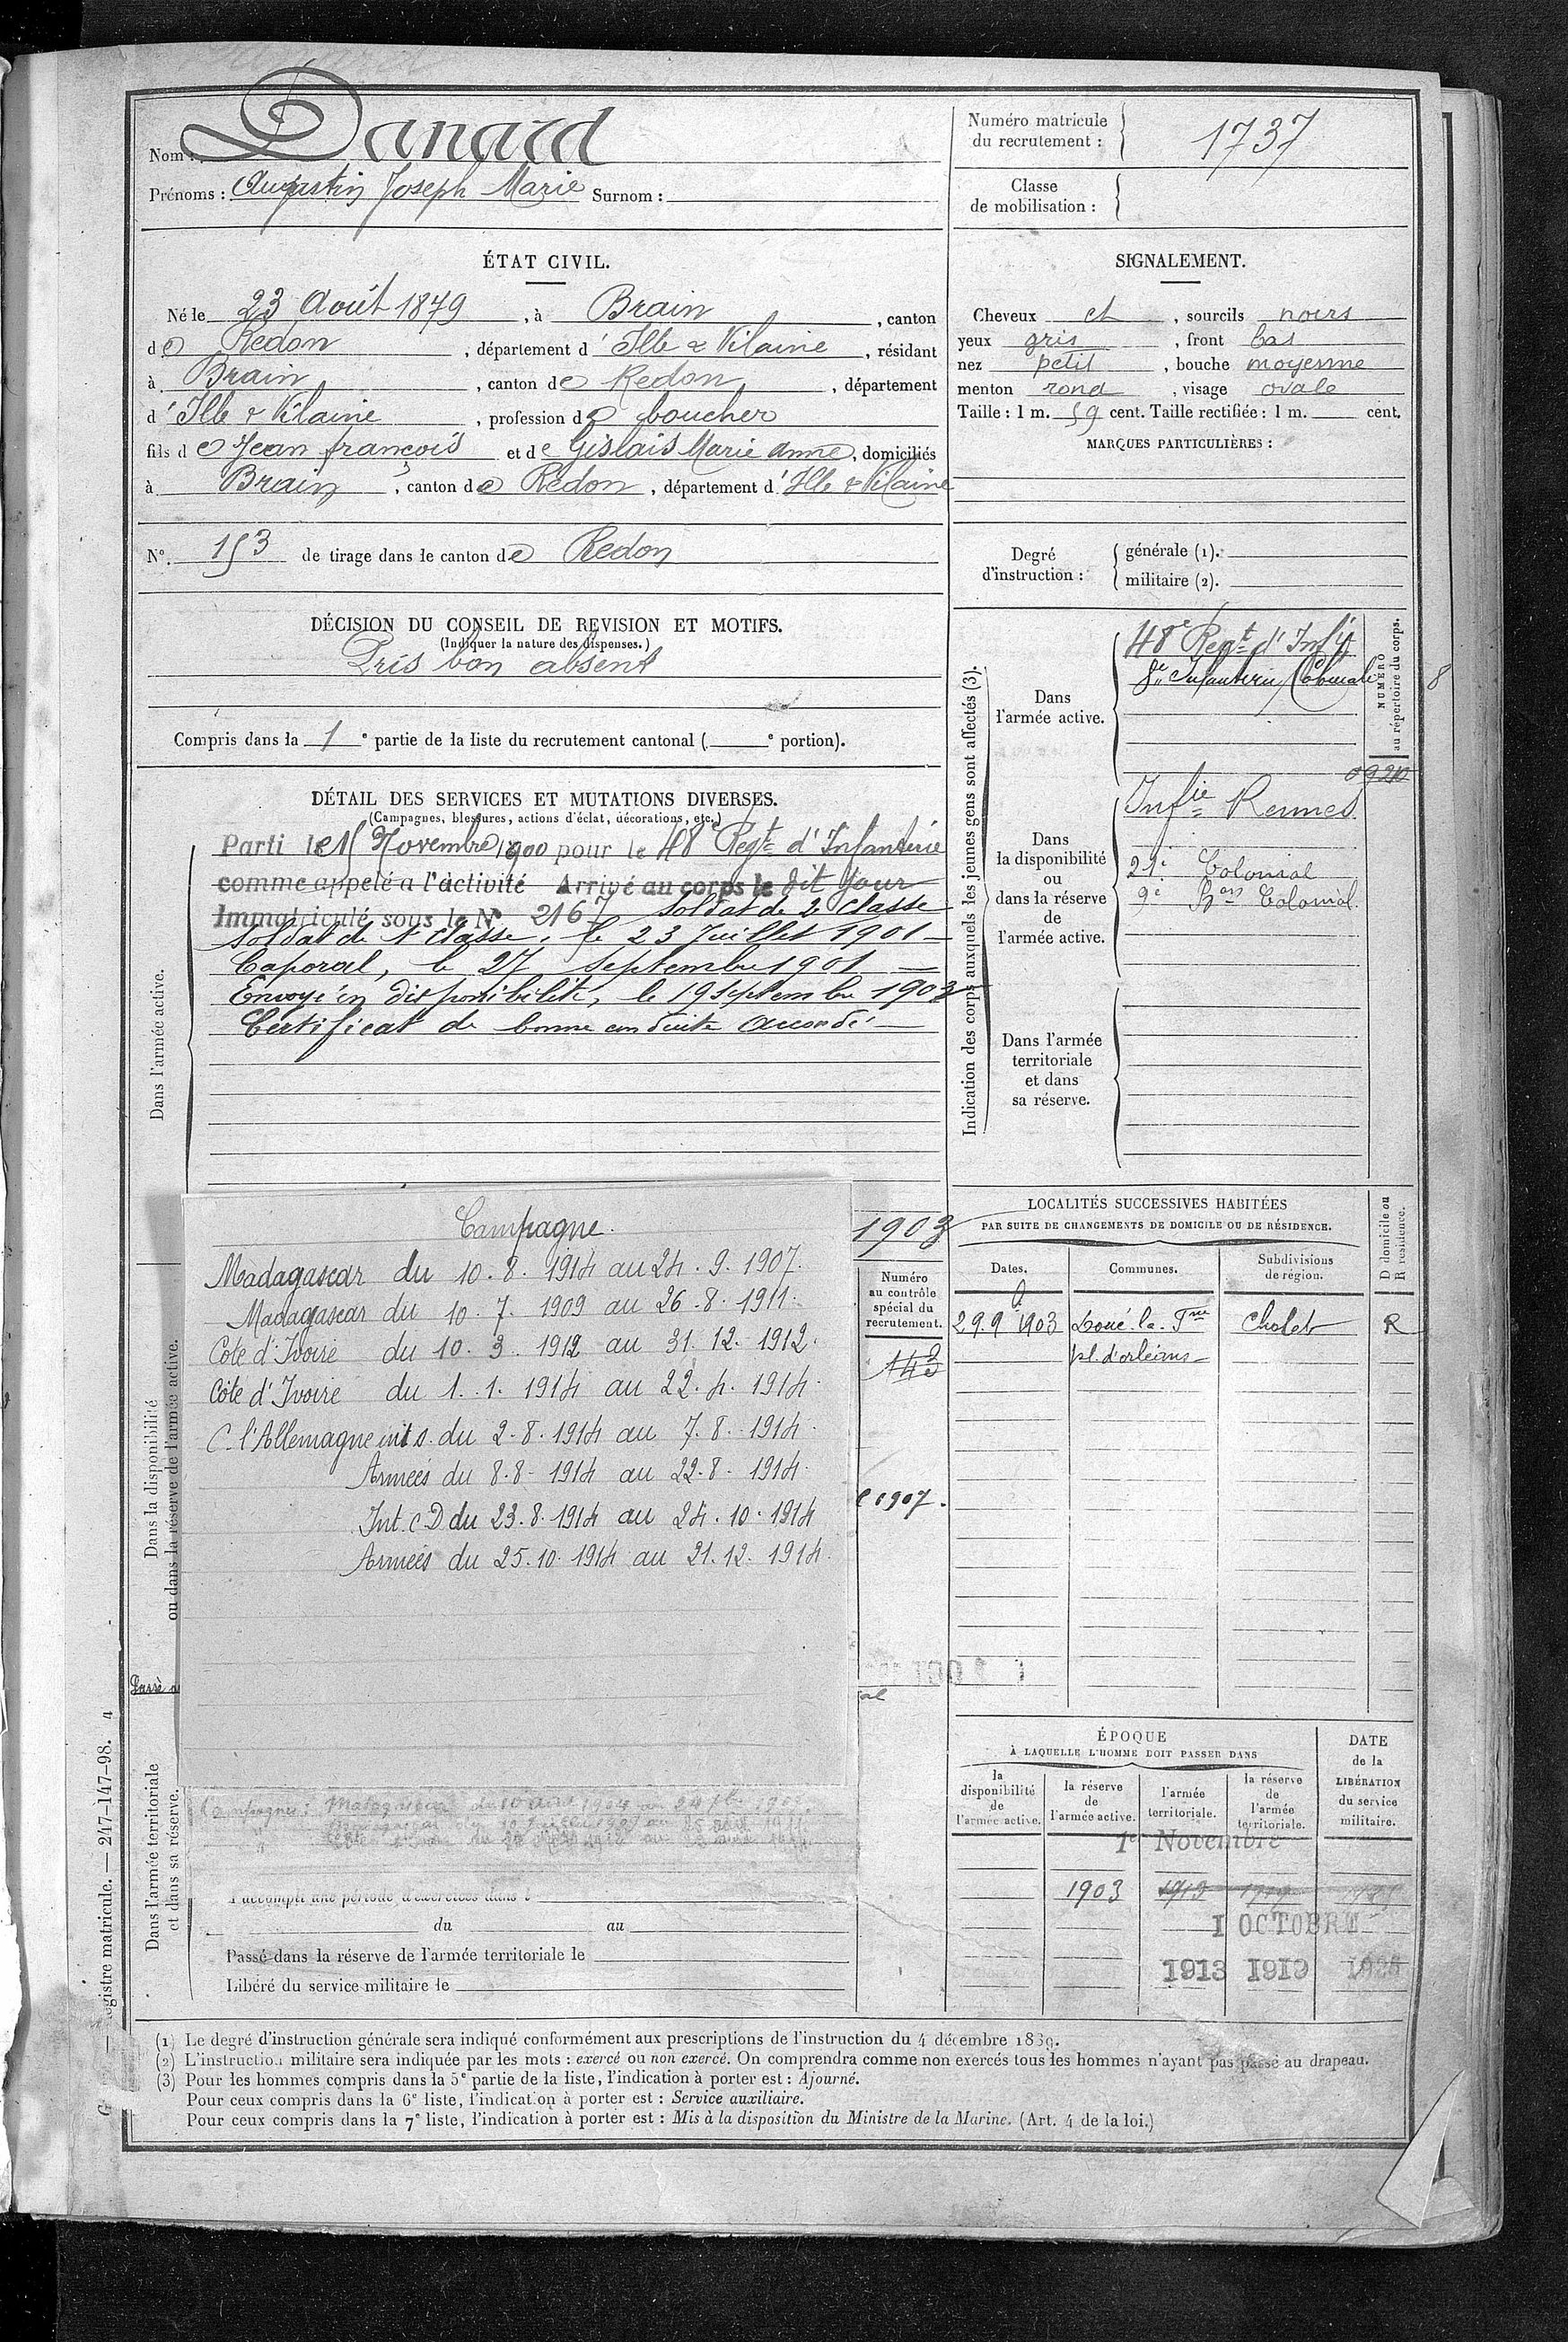 Nom : Danard
Prénoms : Augustin Joseph Marie Surnom :
Numéro matricule
du recrutement : 1737
Classe
de mobilisation :
ÉTAT CIVIL.
Né le 23 Août 1879, à Brain, canton
de Redon, département d'Ille & Vilaine, résidant
à Brain, canton de Redon, département
d'Ille & Vilaine, profession de boucher
fils de Jean françois et de Gislais Marie Anne, domiciliés
à Brain, canton de Redon, département d'Ille & Vilaine
N° 153 de tirage dans le canton de Redon
DÉCISION DU CONSEIL DE REVISION ET MOTIFS.
(Indiquer la nature des dispenses.)
Pris bon absent
Compris dans la 1e partie de la liste du recrutement cantonal ( e portion).
SIGNALEMENT.
Cheveux et, sourcils noirs
yeux gris, front bas
nez petit, bouche moyenne
menton rond, visage ovale
Taille : 1 m. 59 cent. Taille rectifiée : 1 m. cent.
MARQUES PARTICULIÈRES :
Degré
d'instruction :
générale (1).
militaire (2).
Indication des corps auxquels les jeunes gens sont affectés (3).
NUMÉRO
au répertoire du corps.
Dans
l'armée active.
48e Regt d'Infie
8e Infanterie Coloniale
8
Dans
la disponibilité
ou
dans la réserve
de
l'armée active.
Infie Rennes
21e Colonial
9e Bon Colonial.
Dans l'armée
territoriale
et dans
sa réserve.
DÉTAIL DES SERVICES ET MUTATIONS DIVERSES.
(Campagnes, blessures, actions d'éclat, décorations, etc.)
Dans l'armée active.
Parti le 15 Novembre 1900 pour le 48e Regt d'Infanterie
comme appelé a l'activité Arrivé au corps le dit jour
Immatriculé sous le N° 2167 Soldat de 2e Classe
Soldat de 1e classe, le 23 Juillet 1901
Caporal, le 27 septembre 1901
Envoyé en disponibilité, le 19 septembre 1903
Certificat de bonne conduite accordé
Dans la disponibilité
ou dans la réserve de l'armée active.
Campagne.
Madagascar du 10.8.1914 au 24.9.1907.
Madagascar du 10.7.1909 au 26.8.1911.
Côte d'Ivoire du 10.3.1912 au 31.12.1912.
Côte d'Ivoire du 1.1.1914 au 22.4.1914.
C. l'Allemagne int s. du 2.8.1914 au 7.8.1914.
Armées du 8.8.1914 au 22.8.1914.
Int. C D du 23.8.1914 au 24.10.1914
Armées du 25.10.1914 au 21.12.1914.
1903
Numéro
au contrôle
spécial du
recrutement.
143
1907.
Passé
LOCALITÉS SUCCESSIVES HABITÉES
PAR SUITE DE CHANGEMENTS DE DOMICILE OU DE RÉSIDENCE.
Dates.
Communes.
Subdivisions
de région.
D domicile ou
R résidence.
29.9 1903 Doué-la-Fne Cholet R
pl. d'orléans
Dans l'armée territoriale
et dans sa réserve.
A accompli une période d'exercices dans l
du au
Passé dans la réserve de l'armée territoriale le
Libéré du service militaire le
ÉPOQUE
À LAQUELLE L'HOMME DOIT PASSER DANS
la
disponibilité
de
l'armée active.
la réserve
de
l'armée active.
l'armée
territoriale.
la réserve
de
l'armée
territoriale.
DATE
de la
LIBÉRATION
du service
militaire.
1er Novembre
1903 1913
1 OCTOBRE
1913 1919
(1) Le degré d'instruction générale sera indiqué conformément aux prescriptions de l'instruction du 4 décembre 1889.
(2) L'instruction militaire sera indiquée par les mots : exercé ou non exercé. On comprendra comme non exercés tous les hommes n'ayant pas passé au drapeau.
(3) Pour les hommes compris dans la 5e partie de la liste, l'indication à porter est : Ajourné.
Pour ceux compris dans la 6e liste, l'indication à porter est : Service auxiliaire.
Pour ceux compris dans la 7e liste, l'indication à porter est : Mis à la disposition du Ministre de la Marine. (Art. 4 de la loi.)
egistre matricule. — 247-147-98. 4